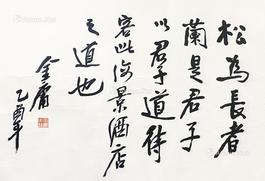 松為長者
蘭是君子
以君子道待
客此海景酒店
之道也
金庸
乙酉年